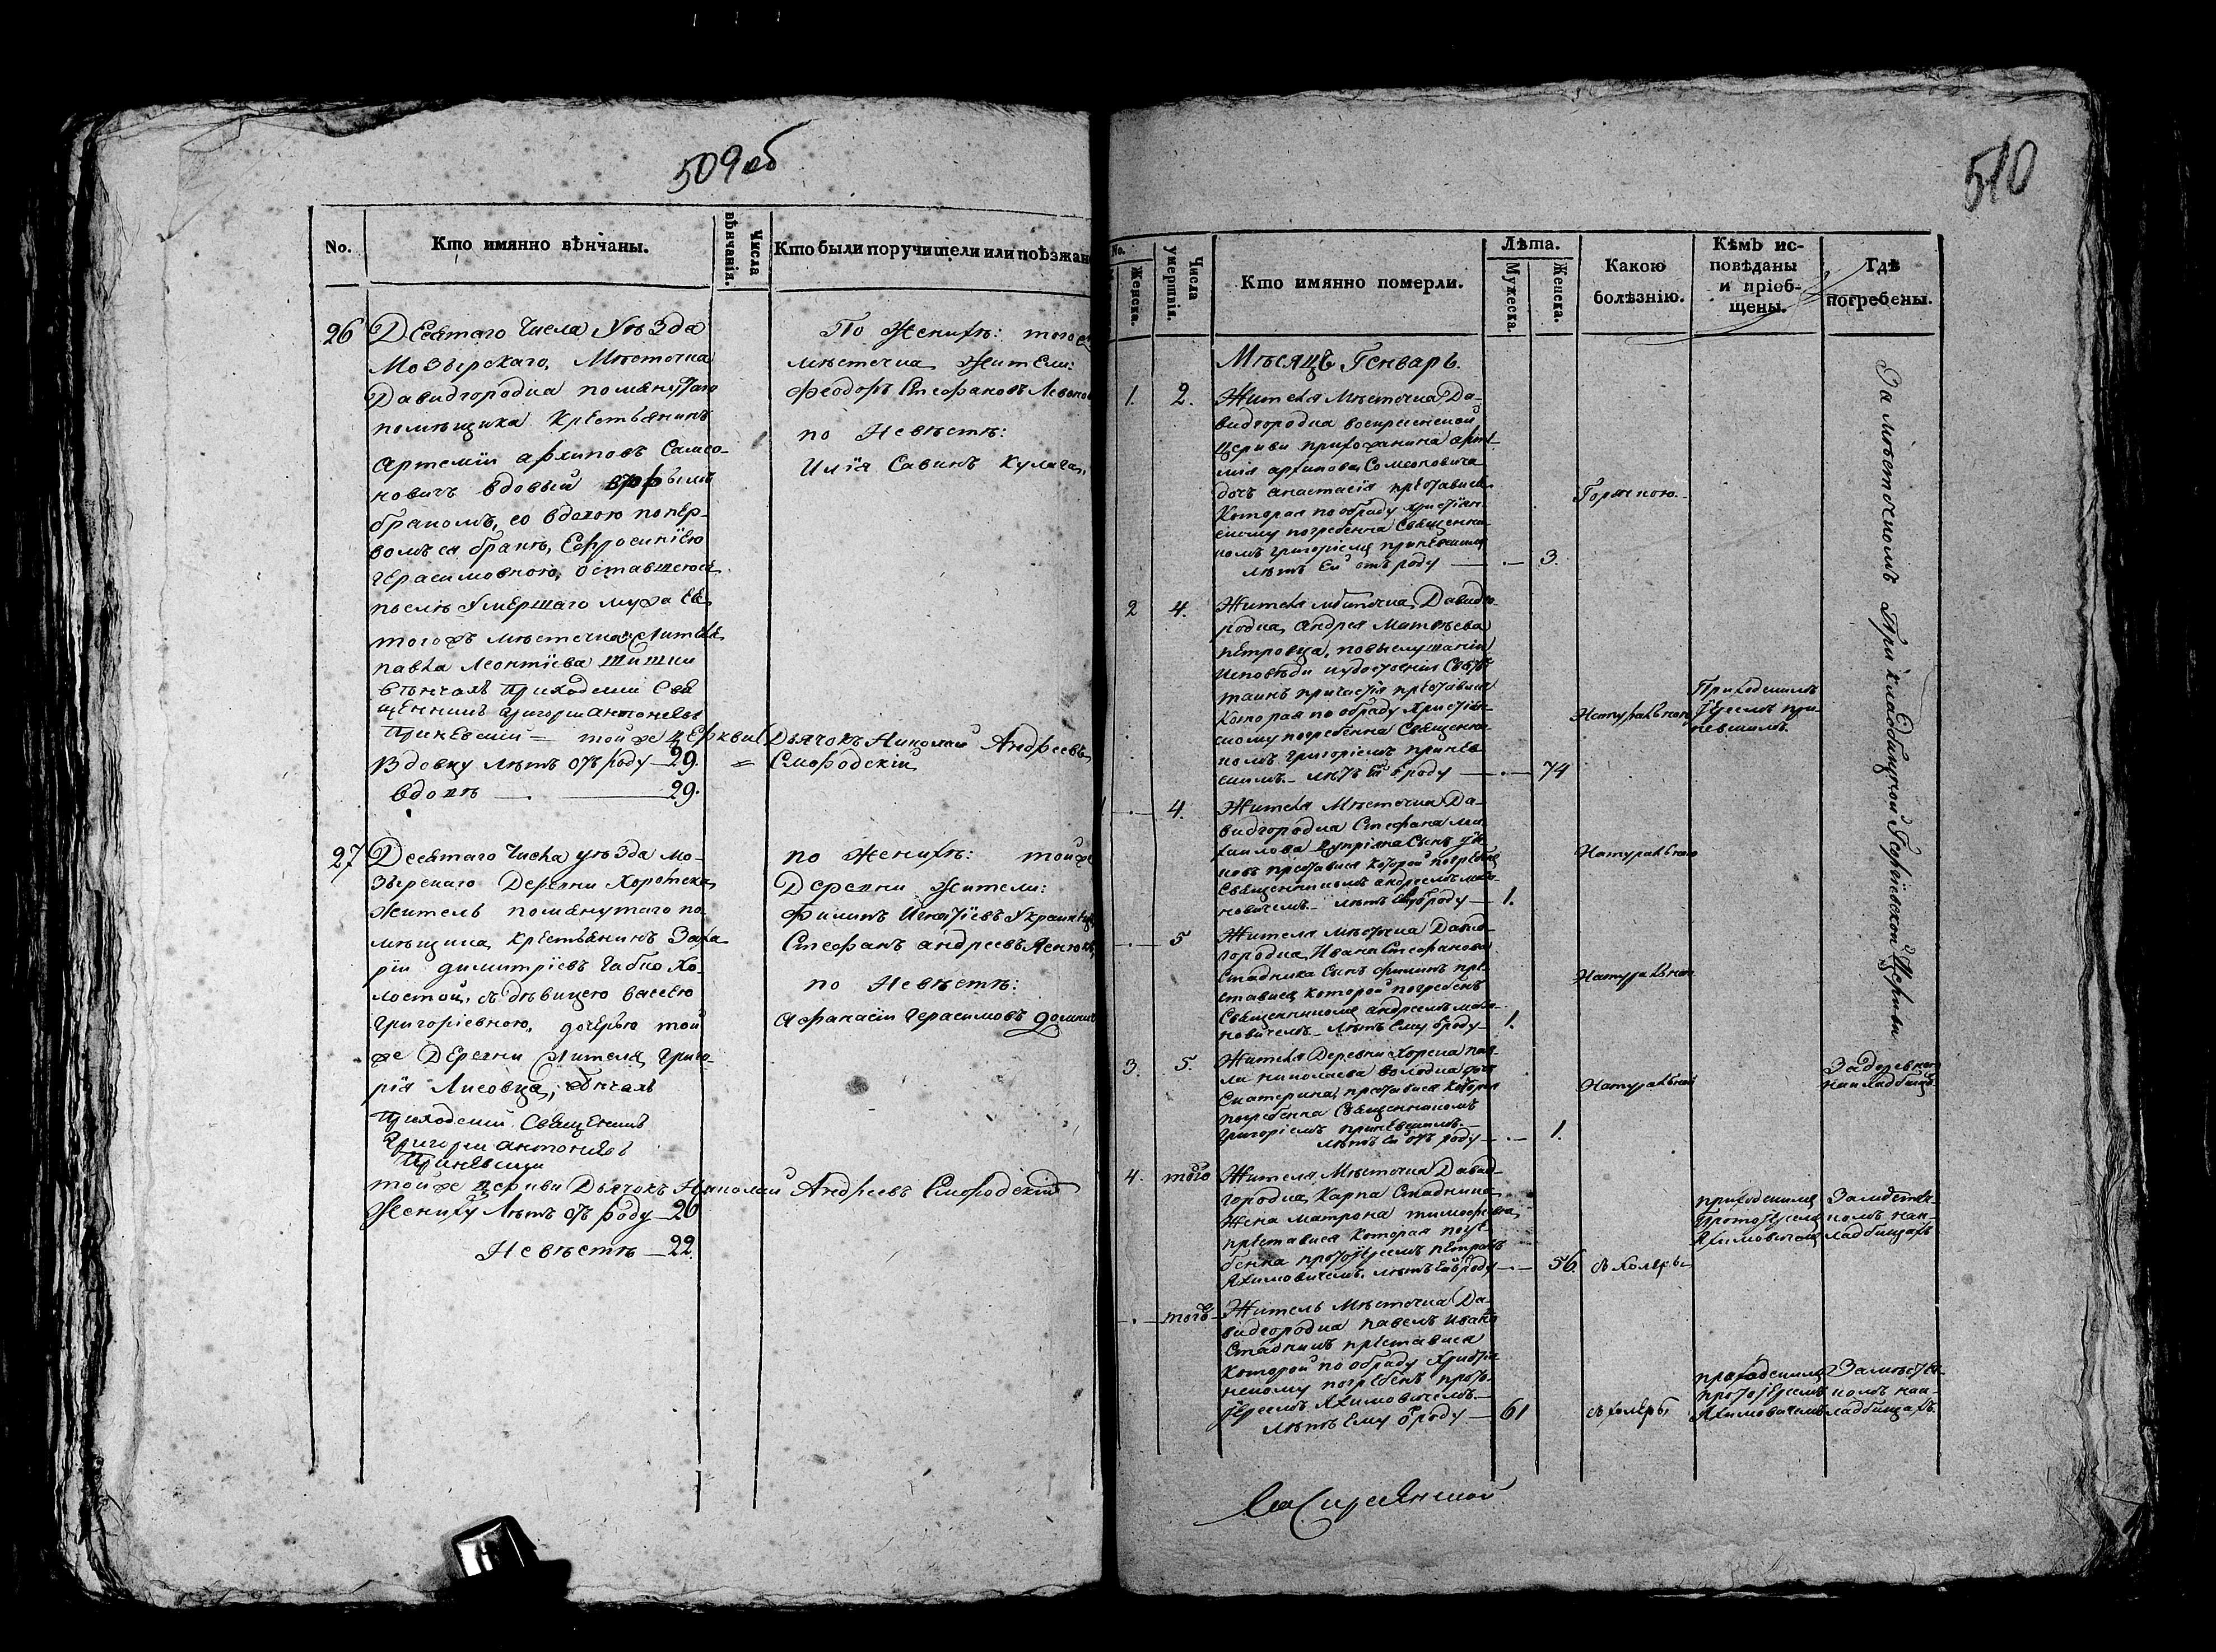 509 об
No.
Кто имянно вѣнчаны.
Числа
вѣнчанія.
Кто были поручители или поѣзжан
26
Десятаго Числа Уѣзда
Мозырскаго, Мѣстечка
Давидгородка помянутаго
помѣщика Крестьянинъ
Артемій архиповъ Самсо-
новичъ вдовый
бракомъ, со вдовою попер-
вомъ ея бракѣ, Ефросиніею
Герасимовною, оставшеюся
послѣ Умершаго мужа Ея
тогожъ мѣстечка жителя
павла Леонтіева
вѣнчалъ приходскій Свя
щенникъ Григорій антоніевъ
Приневскій = тойже церкви Дьячокъ Николай Андреевъ
Смородскій
Вдовцу лѣтъ отъ роду 29.
вдовѣ — 29.
По Женихѣ: тогоже
мѣстечка Жители:
Феодоръ Стефановъ
по Невѣстѣ:
Илія Савинъ Кулага,
27
Десятаго Числа уѣзда Мо-
зырскаго Деревни Хоромска
Житель помянутаго по-
мѣщика Крестьянинъ Заха
рій димитріевъ Хо-
лостой, съ дѣвицею васею
Григоріевною, дочерью той
же Деревни Жителя Григо-
рія Лисовца; вѣнчалъ
Приходскій Священникъ
Григорій антоніевъ
Приневскій
тойже церкви Дьячокъ Николай Андреевъ Смородскій
Жениху Лѣтъ отъ роду 26
Невѣстѣ — 22.
по Женихѣ: тойже
Деревни Жители:
Филипъ Игнатіевъ
Стефанъ андреевъ
по Невѣстѣ:
Афанасій Герасимовъ
510
No.
Женска.
Числа
умершія.
Кто имянно померли.
Лѣта.
Мужеска.
Женска.
Какою
болѣзнію.
Кѣмъ ис-
повѣданы
и пріоб-
щены.
Гдѣ
погребены.
Мѣсяцъ Генварь.
1. 2.
Жителя Мѣстечка Да-
видгородка воскресенской
Церкви прихожанина арте-
мія архипова
дочь анастасія преставися
Которая по обряду христіян-
скому погребенна Священни-
комъ Григоріемъ приневскимъ
лѣтъ Ей отъ роду — 3.
Горячкою.
2 4.
Жителя мѣстечка Давидго-
родка, андрея Матвѣева
петровца, повыслушаніи
Исповѣди иудостоенія Святыхъ
таинъ причастія преставися
Которая по обряду Христіян-
скому погребенна Священни-
комъ Григоріемъ принев
скимъ. — лѣтъ Ей о роду — 74
Натуральною
Приходскимъ
Іереемъ при
невскимъ.
4.
Жителя Мѣстечка Да-
видгородка Стефана ми-
хаилова Сынъ
преставися Которой погребенъ
Священникомъ андреемъ
лѣтъ Ему ороду — 1.
Натуральною
5
Жителя мѣстечка Давид-
городка, Ивана Стефанова
Стадника Сынъ филипъ пре-
ставися Которой погребенъ
Священникомъ андреемъ
Лѣтъ Ему ороду — 1.
Натуральною
3. 5.
Жителя Деревни Хорска пав-
ла николаева дочь
Екатерина, преставися Которая
погребенна Священникомъ
Григоріемъ приневскимъ. —
лѣтъ Ей отъ роду — 1.
Натуральною
4. того
Жителя Мѣстечка Давид-
городка, Карпа Стадника
Жена матрона тимофеевна,
преставися Которая погре-
бенна протоіереемъ петромъ
Якимовичемъ. лѣтъ Ей ороду — 56.
приходскимъ
Протоіереемъ
Якимовичемъ
Житель Мѣстечка Да-
видгородка павелъ
Стадникъ преставися
Которой по обряду Христія
нскому погребенъ прото-
іереемъ Якимовичемъ. —
лѣтъ Ему ороду — 61
приходскимъ
протоіереемъ
Якимовичемъ
За мѣстечкомъ При Кладбищной Георгіевской Церкви